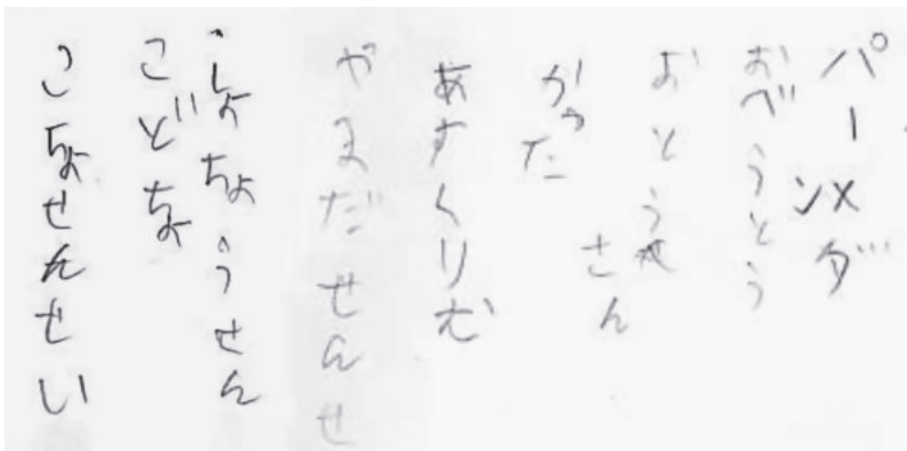 パーメンダ
おべうとう
おとうさん
かった
あすくりむ
やまだせんせ
しょちょうせん
こどちょ
こちょせんせい